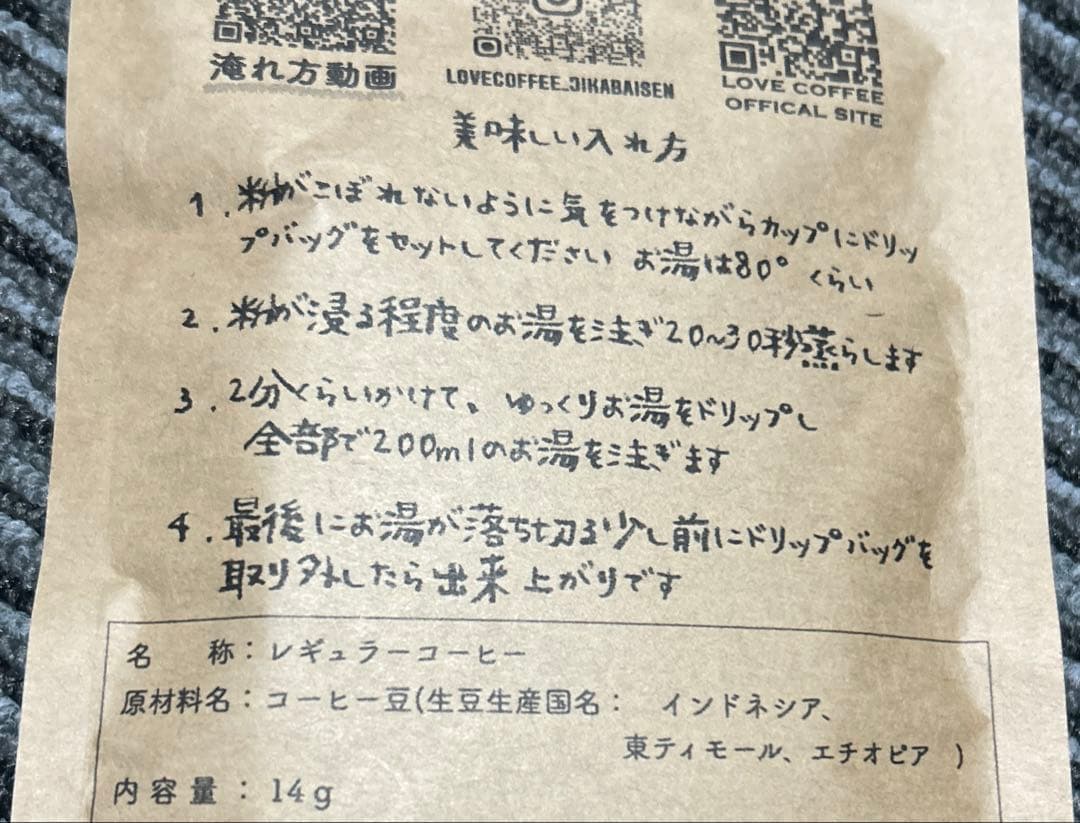 淹れ方動画
LOVECOFFEE_JIKABAISEN
LOVE COFFEE
OFFICAL SITE
美味しい入れ方
1. 粉がこぼれないように気をつけながらカップにドリッ
プバッグをセットしてください お湯は80° くらい
2. 粉が浸る程度のお湯を注ぎ20~30秒蒸らします
3. 2分くらいかけて、ゆっくりお湯をドリップし
全部で200mlのお湯を注ぎます
4. 最後にお湯が落ち切る少し前にドリップバッグを
取り外したら出来上がりです
名 称：レギュラーコーヒー
原材料名：コーヒー豆(生豆生産国名： インドネシア、
東ティモール、エチオピア )
内容量：14g